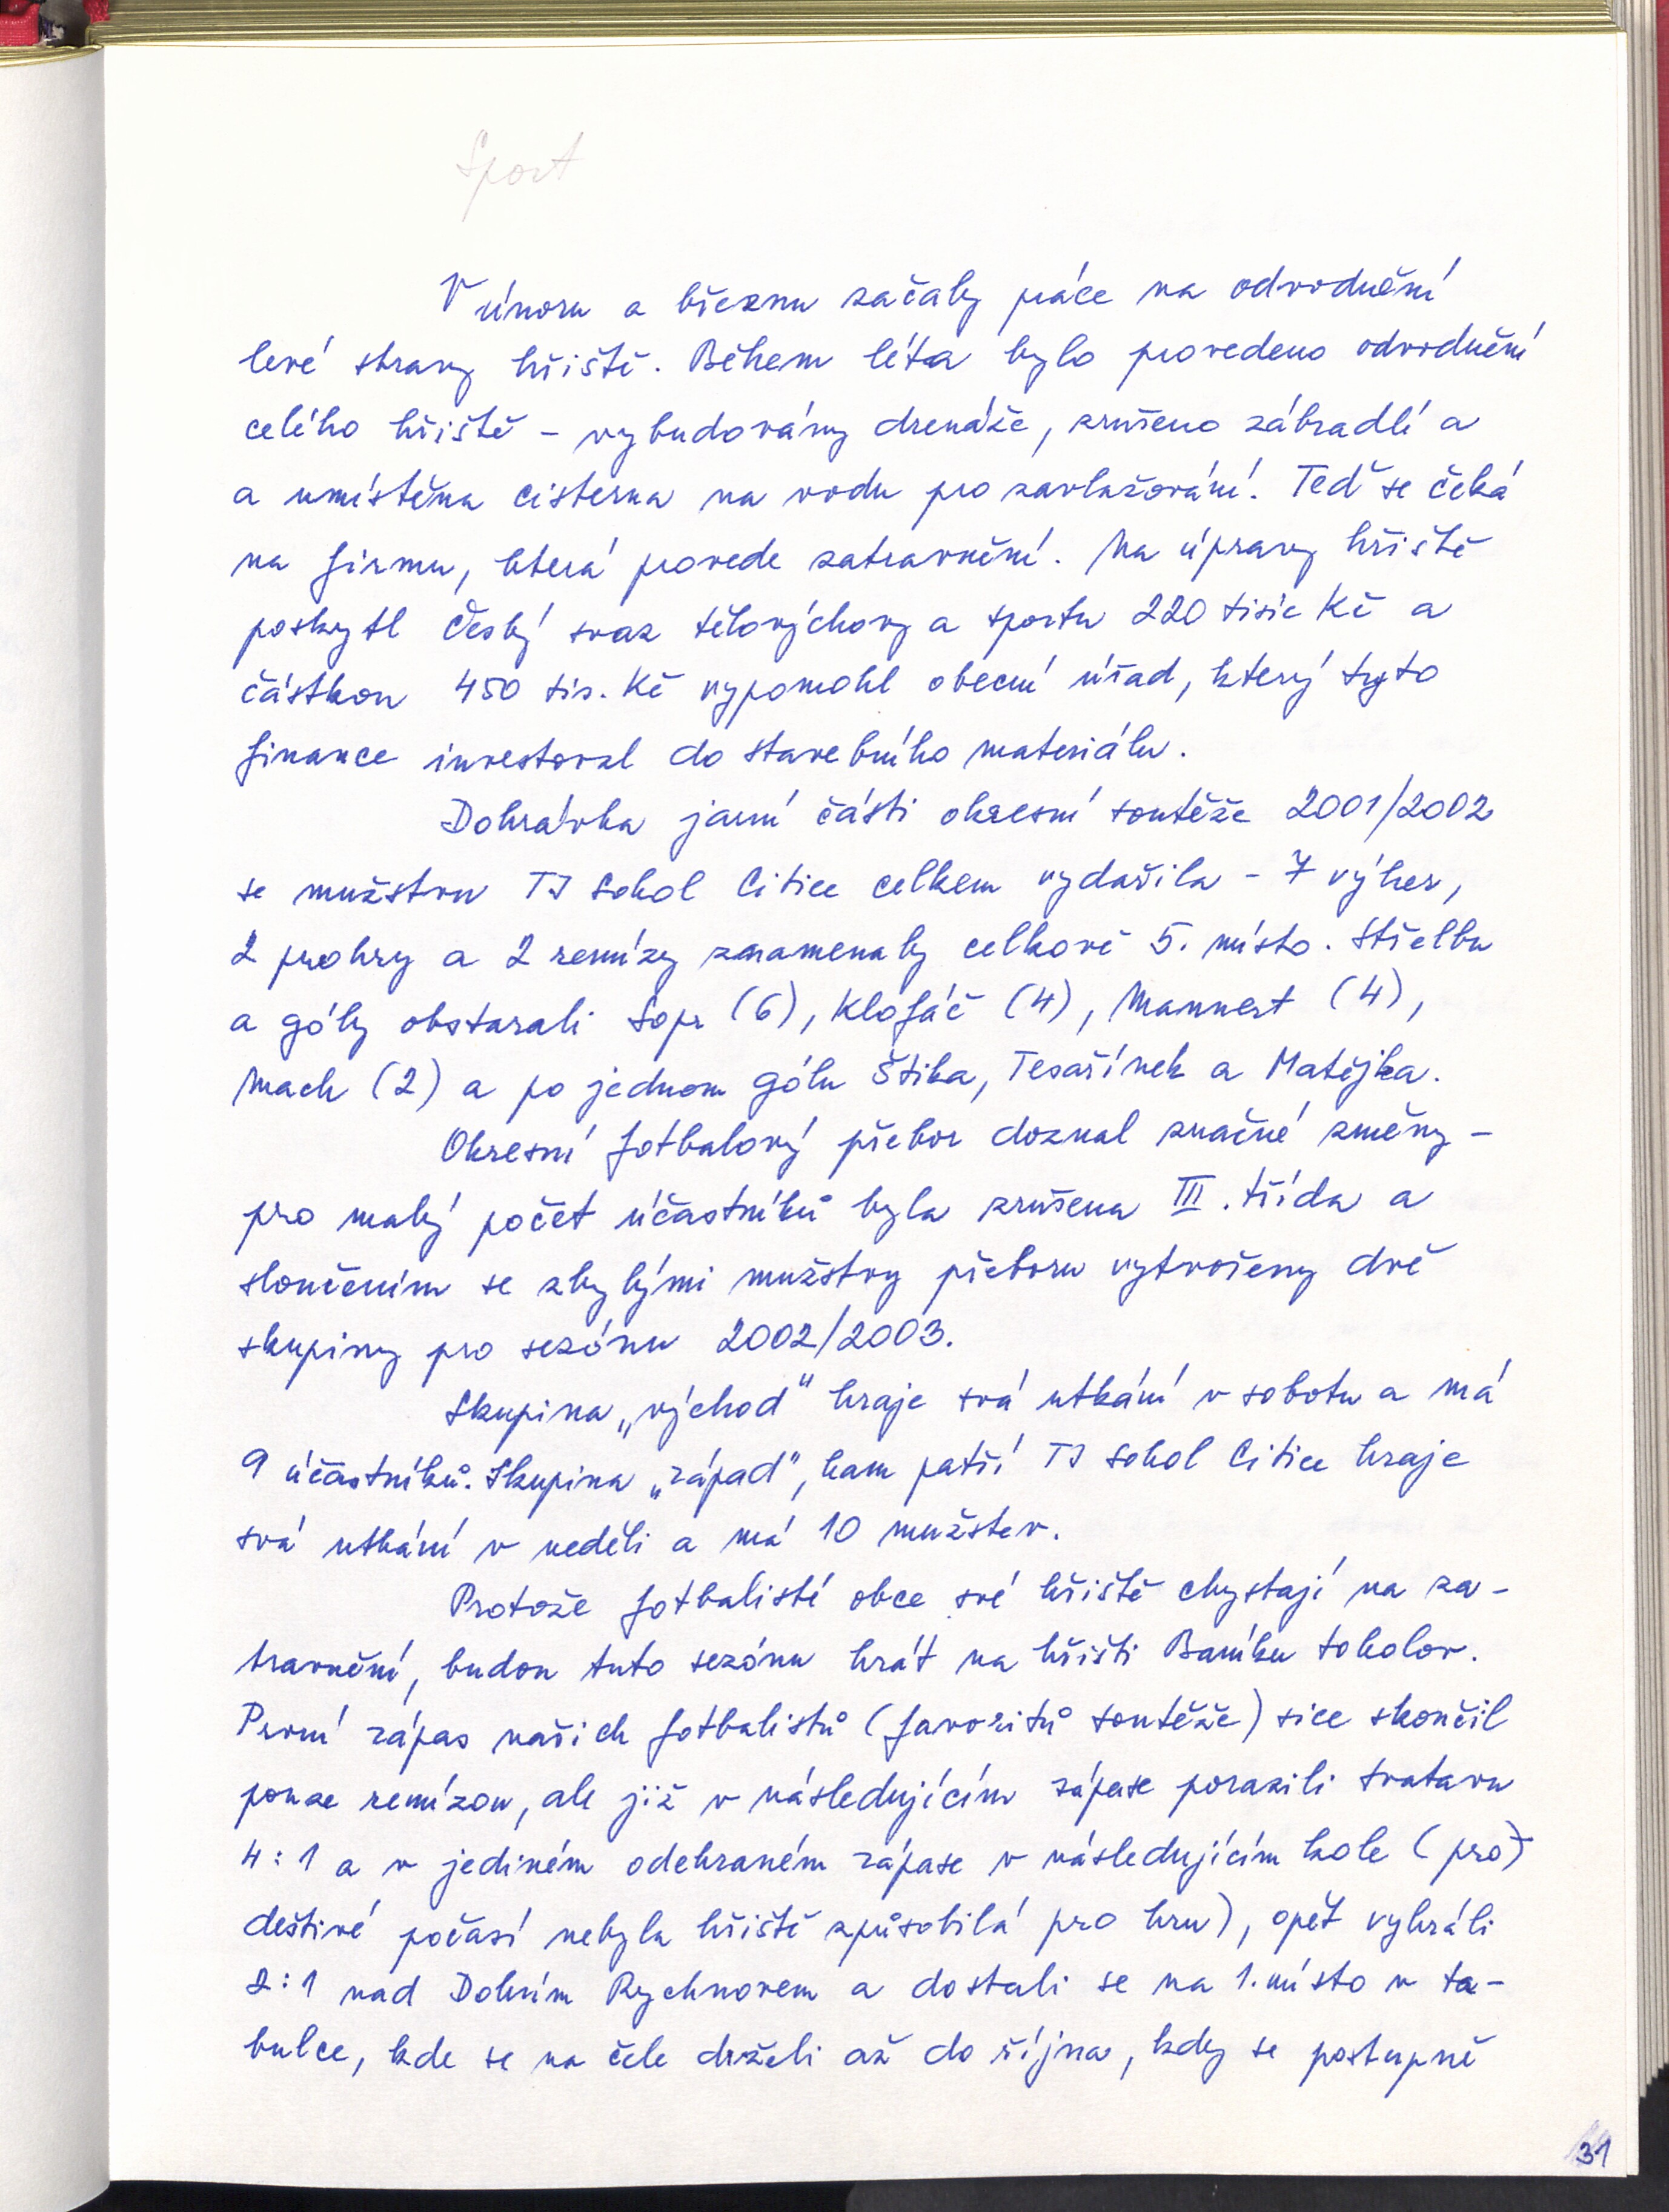 Sport
V únoru a březnu začaly práce na odvodnění
levé strany hřiště. Během léta bylo provedeno odvodnění
celého hřiště - vybudovány drenáže, zrušeno zábradlí a
a umístěna cisterna na vodu pro zavlažování. Teď se čeká
na firmu, která provede zatravnění. Na úpravy hřiště
poskytl Český svaz tělovýchovy a sportu 220 tisíc Kč a
částkou 450 tis. Kč vypomohl obecní úřad, který tyto
finance investoval do stavebního materiálu.
Dohrávka jarní části okresní soutěže 2001/2002
se mužstvu TJ Sokol Citice celkem vydařila - 7 výher,
2 prohry a 2 remízy znamenaly celkově 5. místo. Střelbu
a góly obstarali Sopr (6), Klofáč (4), Mannert (4),
Mach (2) a po jednom gólu Štika, Tesařínek a Matějka.
Okresní fotbalový přebor doznal značné změny -
pro malý počet účastníků byla zrušena III. třída a
sloučením se zbylými mužstvy přeboru vytvořeny dvě
skupiny pro sezónu 2002/2003.
Skupina „východ" hraje svá utkání v sobotu a má
9 účastníků. Skupina „západ", kam patří TJ Sokol Citice hraje
svá utkání v neděli a má 10 mužstev.
Protože fotbalisté obce své hřiště chystají na za-
travnění, budou tuto sezónu hrát na hřišti Baníku Sokolov.
První zápas našich fotbalistů (favoritů soutěže) sice skončil
pouze remízou, ale již v následujícím zápase porazili Svatavu
4:1 a v jediném odehraném zápase v následujícím kole (pro
deštivé počasí nebyla hřiště způsobilá pro hru), opět vyhráli
2:1 nad Dolním Rychnovem a dostali se na 1. místo v ta-
bulce, kde se na čele drželi až do října, kdy se postupně
31